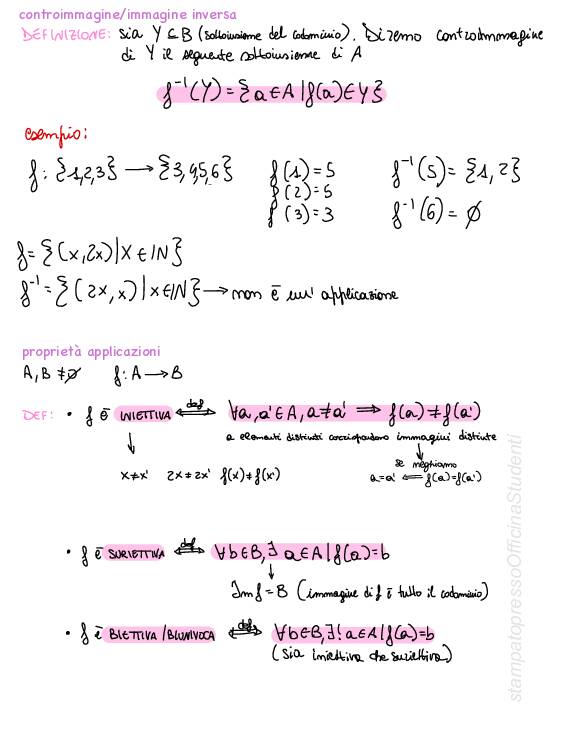 controimmagine/immagine inversa
DEFINIZIONE: sia Y ⊆ B (sottoinsieme del codominio). Diremo controimmagine
di Y il seguente sottoinsieme di A
f⁻¹(Y) = {a ∈ A | f(a) ∈ Y}
esempio:
f: {1,2,3} → {3,4,5,6} f(1)=5 f⁻¹(5) = {1,2}
f(2)=5
f(3)=3 f⁻¹(6) = ∅
f = {(x,2x) | x ∈ IN}
f⁻¹ = {(2x,x) | x ∈ IN} → non è un' applicazione
proprietà applicazioni
A, B ≠ ∅ f: A → B
DEF: • f è INIETTIVA ⟺ def ∀a,a' ∈ A, a ≠ a' ⟹ f(a) ≠ f(a')
a elementi distinti corrispondono immagini distinte
se neghiamo
x ≠ x' 2x ≠ 2x' f(x) ≠ f(x') a=a' ⟸ f(a)=f(a')
• f è SURIETTIVA ⟺ def ∀b ∈ B, ∃ a ∈ A | f(a)=b
Imf = B (immagine di f è tutto il codominio)
• f è BIETTIVA/BIUNIVOCA ⟺ def ∀b ∈ B, ∃! a ∈ A | f(a)=b
(sia iniettiva che suriettiva)
stampatopressoOfficinaStudenti